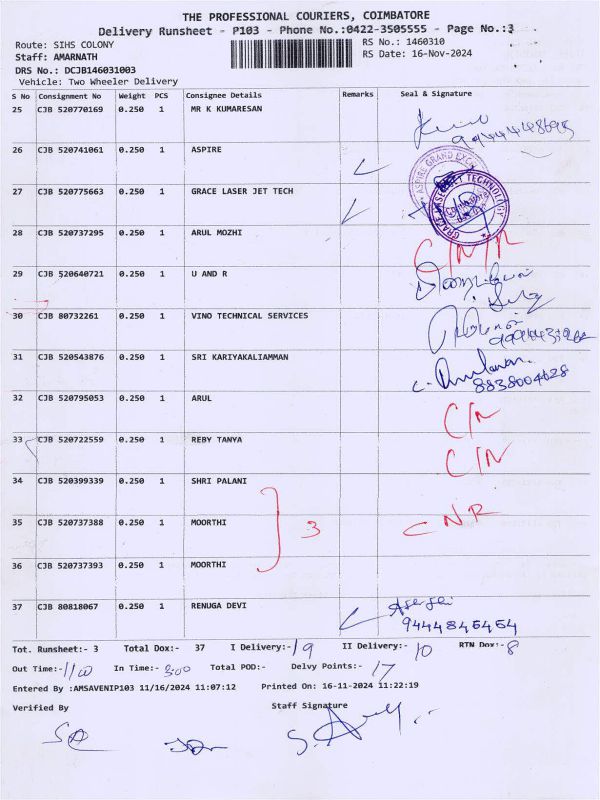 THE PROFESSIONAL COURIERS, COIMBATORE
Delivery Runsheet - P103 - Phone No.:0422-3505555 - Page No.:3
Route: SIHS COLONY RS No.: 1460310
Staff: AMARNATH RS Date: 16-Nov-2024
DRS No.: DCJB146031003
Vehicle: Two Wheeler Delivery
S No Consignment No Weight PCS Consignee Details Remarks Seal & Signature
25 CJB 520770169 0.250 1 MR K KUMARESAN
26 CJB 520741061 0.250 1 ASPIRE
27 CJB 520775663 0.250 1 GRACE LASER JET TECH
28 CJB 520737295 0.250 1 ARUL MOZHI
29 CJB 520640721 0.250 1 U AND R
30 CJB 80732261 0.250 1 VINO TECHNICAL SERVICES
31 CJB 520543876 0.250 1 SRI KARIYAKALIAMMAN
8838004628
32 CJB 520795053 0.250 1 ARUL C/N
33 CJB 520722559 0.250 1 REBY TANYA C/N
34 CJB 520399339 0.250 1 SHRI PALANI
35 CJB 520737388 0.250 1 MOORTHI 3 CNR
36 CJB 520737393 0.250 1 MOORTHI
37 CJB 80818067 0.250 1 RENUGA DEVI
9444845454
Tot. Runsheet:- 3 Total Dox:- 37 I Delivery:- 19 II Delivery:- 10 RTN Dox:- 8
Out Time:- 1100 In Time:- 3:00 Total POD:- Delvy Points:- 17
Entered By :AMSAVENIP103 11/16/2024 11:07:12 Printed On: 16-11-2024 11:22:19
Verified By Staff Signature